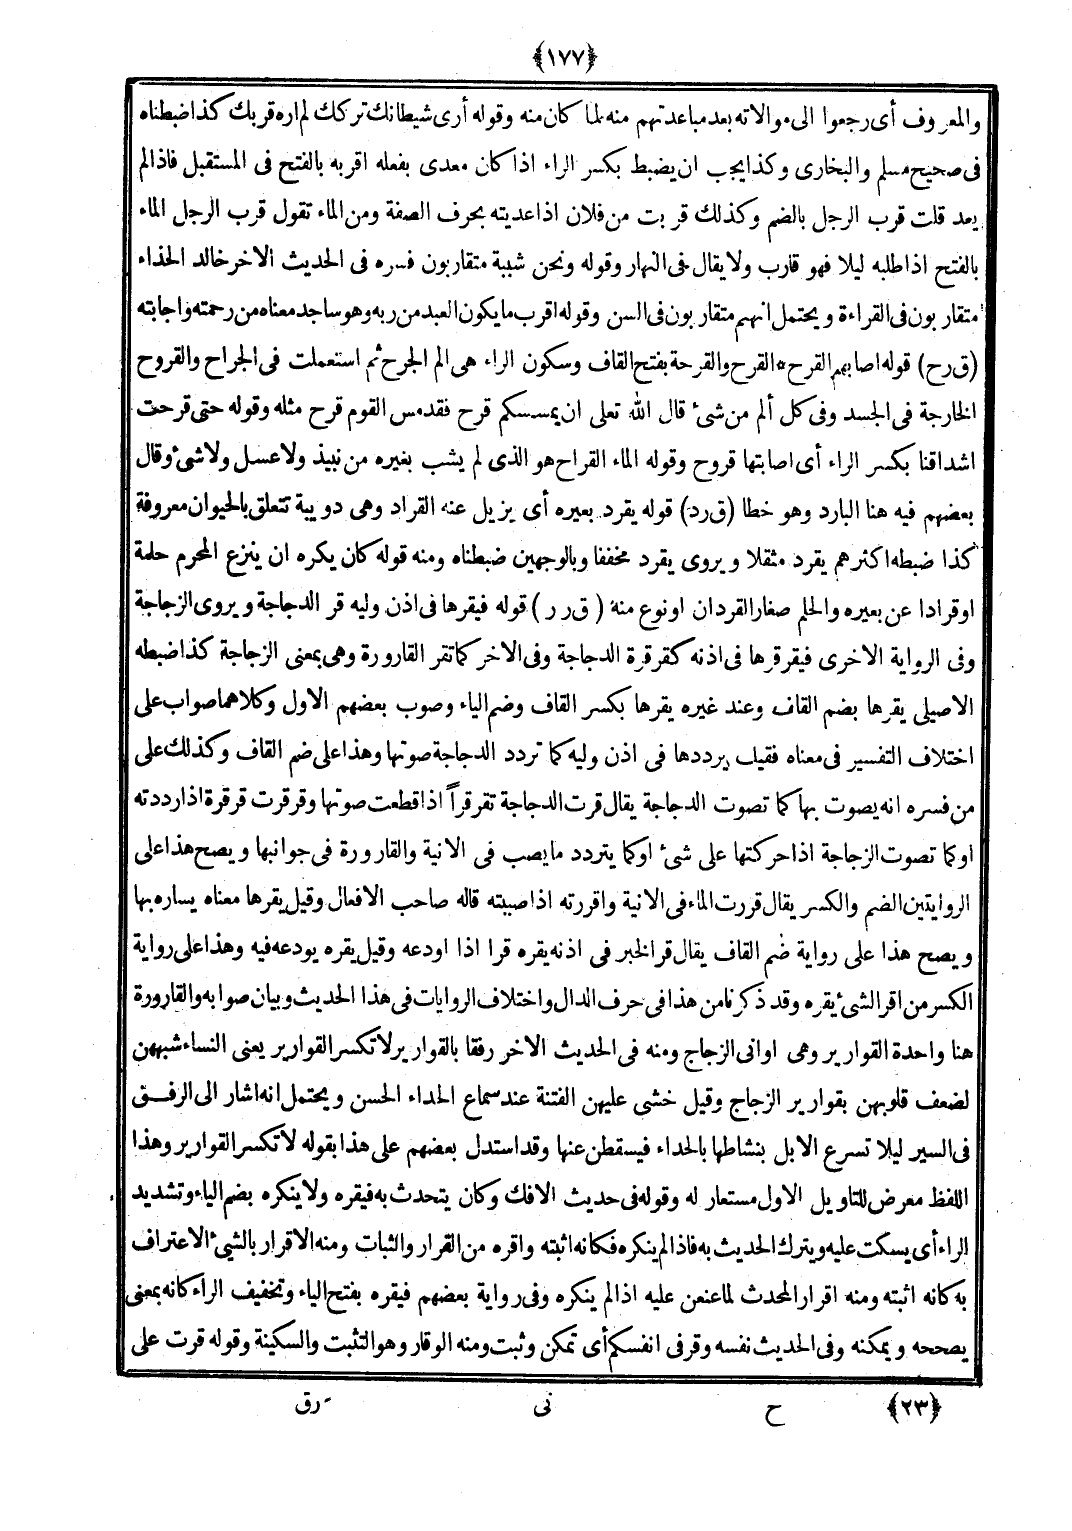 ﴿١٧٧﴾
والمعروف أى رجعوا الى موالاته بعد مباعدتهم منه لما كان منه وقوله أرى شيطانك تركك لم اره قربك كذا ضبطناه
فى صحيح مسلم والبخارى وكذا يجب ان يضبط بكسر الراء اذا كان معدى بفعله اقربه بالفتح فى المستقبل فاذا لم
يعد قلت قرب الرجل بالضم وكذلك قربت من فلان اذا عديته بحرف الصفة ومن الماء تقول قرب الرجل الماء
بالفتح اذا طلبه ليلا فهو قارب ولا يقال فى النهار وقوله ونحن شببة متقاربون فسره فى الحديث الاخر خالد الحذاء
متقاربون فى القراءة ويحتمل انهم متقاربون فى السن وقوله اقرب ما يكون العبد من ربه وهو ساجد معناه من رحمته واجابته
(ق رح) قوله اصابهم القرح * القرح والقرحة بفتح القاف وسكون الراء هى الم الجرح ثم استعملت فى الجراح والقروح
الخارجة فى الجسد وفى كل ألم من شئ قال الله تعلى ان يمسسكم قرح فقد مس القوم قرح مثله وقوله حتى قرحت
اشداقنا بكسر الراء أى اصابتها قروح وقوله الماء القراح هو الذى لم يشب بغيره من نبيذ ولا عسل ولا شئ وقال
بعضهم فيه هنا البارد وهو خطا (ق رد) قوله يقرد بعيره أى يزيل عنه القراد وهى دويبة تتعلق بالحيوان معروفة
كذا ضبطه اكثرهم يقرد مثقلا ويروى يقرد مخففا وبالوجهين ضبطناه ومنه قوله كان يكره ان ينزع المحرم حلمة
او قرادا عن بعيره والحلم صغار القردان او نوع منه (ق ر ر) قوله فيقرها فى اذن وليه قر الدجاجة ويروى الزجاجة
وفى الرواية الاخرى فيقرقرها فى اذنه كقرقرة الدجاجة وفى الاخر كما تقر القارورة وهى بمعنى الزجاجة كذا ضبطه
الاصيلى يقرها بضم القاف وعند غيره يقرها بكسر القاف وضم الياء وصوب بعضهم الاول وكلاهما صواب على
اختلاف التفسير فى معناه فقيل يرددها فى اذن وليه كما تردد الدجاجة صوتها وهذا على ضم القاف وكذلك على
من فسره انه يصوت بها كما تصوت الدجاجة يقال قرت الدجاجة تقر قراً اذا قطعت صوتها وقرقرت قرقرة اذا رددته
او كما تصوت الزجاجة اذا حركتها على شئ او كما يتردد ما يصب فى الانية والقارورة فى جوانبها ويصح هذا على
الروايتين الضم والكسر يقال قررت الماء فى الانية واقررته اذا صببته قاله صاحب الافعال وقيل يقرها معناه يساره بها
ويصح هذا على رواية ضم القاف يقال قر الخبر فى اذنه يقره قرا اذا اودعه وقيل يقره يودعه فيه وهذا على رواية
الكسر من اقر الشئ يقره وقد ذكرنا من هذا فى حرف الدال واختلاف الروايات فى هذا الحديث وبيان صوابه والقارورة
هنا واحدة القوارير وهى اوانى الزجاج ومنه فى الحديث الاخر رفقا بالقوارير لا تكسر القوارير يعنى النساء شبههن
لضعف قلوبهن بقوارير الزجاج وقيل خشى عليهن الفتنة عند سماع الحداء الحسن ويحتمل انه اشار الى الرفق
فى السير ليلا تسرع الابل بنشاطها بالحداء فيسقطن عنها وقد استدل بعضهم على هذا بقوله لا تكسر القوارير وهذا
اللفظ معرض للتاويل الاول مستعار له وقوله فى حديث الافك وكان يتحدث به فيقره ولا ينكره بضم الياء وتشديد
الراء أى يسكت عليه ويترك الحديث به فاذا لم ينكره فكانه اثبته واقره من القرار والثبات ومنه الاقرار بالشئ الاعتراف
به كانه اثبته ومنه اقرار المحدث لما عنعن عليه اذا لم ينكره وفى رواية بعضهم فيقره بفتح الياء وتخفيف الراء كانه بمعنى
يصححه ويمكنه وفى الحديث نفسه وقر فى انفسكم أى تمكن وثبت ومنه الوقار وهو التثبت والسكينة وقوله قرت على
﴿٢٣﴾ ح نى رق